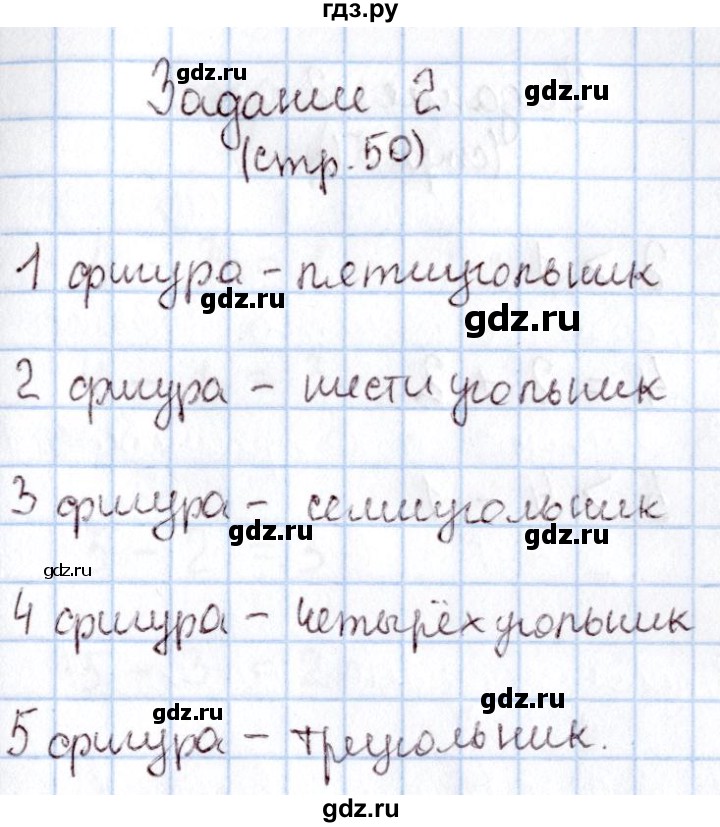 гдз.ру
Задание 2
gdz.ru
gdz.ru
(стр. 50)
1 фигура - пятиугольник
gdz.ru
gdz.ru
2 фигура - шестиугольник
3 фигура - семиугольник
gdz.ru
gdz.ru
gdz.ru
4 фигура - четырёхугольник
gdz.ru
gdz.ru
5 фигура - треугольник.
gdz.ru